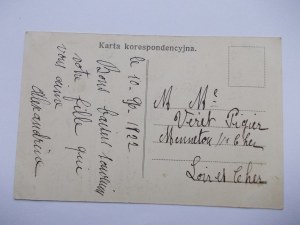 Karta korespondencyjna.
le 10-9-1922
Bons baisers
votre fille qui
vous aime
Alexandrina
M Me
Veret Pigier
Menneton s/ Cher
Loir et Cher